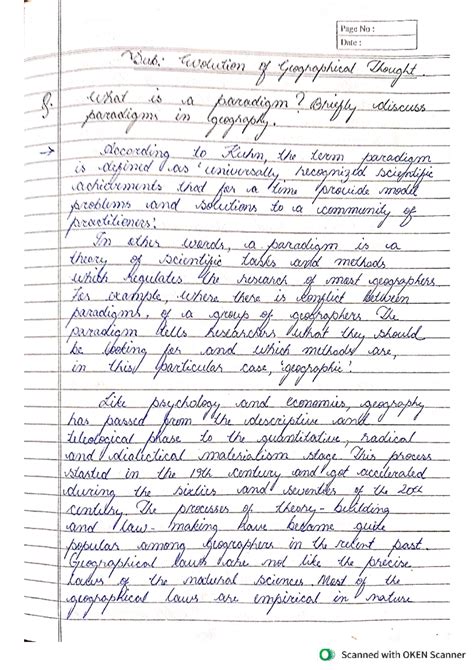 Page No :
Date :
Sub: Evolution of Geographical Thought.
Q. What is a paradigm? Briefly discuss
paradigms in geography.
→ According to Kuhn, the term paradigm
is defined as 'universally recognized scientific
achievements that for a time provide model
problems and solutions to a community of
practitioners'.
In other words, a paradigm is a
theory of scientific tasks and methods
which regulates the research of most geographers
For example, where there is conflict between
paradigms, of a group of geographers. The
paradigm tells researchers what they should
be looking for and which methods are,
in this particular case, 'geographic'.
Like psychology and economics, geography
has passed from the descriptive and
teleological phase to the quantitative, radical
and dialectical materialism stage. This process
started in the 19th century and got accelerated
during the sixties and seventies of the 20th
century. The processes of theory-building
and law-making have become quite
popular among geographers in the recent past.
Geographical laws are not like the precise
laws of the natural sciences. Most of the
geographical laws are empirical in nature
Scanned with OKEN Scanner